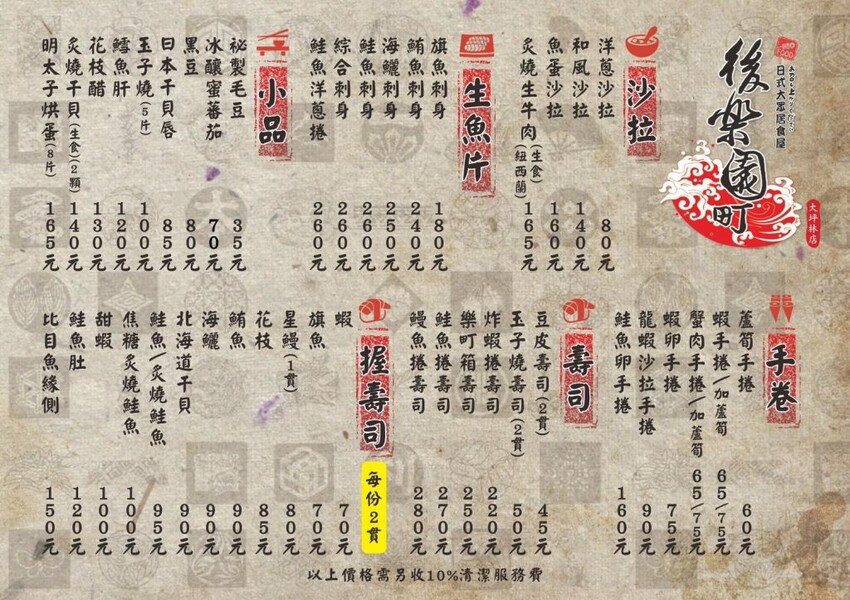 後樂園町
日式大眾居食屋
大坪林店
沙拉
洋蔥沙拉 80元
和風沙拉 140元
魚蛋沙拉 160元
炙燒生牛肉(生食)(紐西蘭) 165元
生魚片
旗魚刺身 180元
鮪魚刺身 240元
海鱺刺身 250元
鮭魚刺身 260元
綜合刺身 260元
鮭魚洋蔥捲 260元
小品
祕製毛豆 35元
冰釀蜜蕃茄 70元
黑豆 80元
日本干貝唇 85元
玉子燒(5片) 100元
鱈魚肝 120元
花枝醋 130元
炙燒干貝(生食)(2顆) 140元
明太子烘蛋(8片) 165元
手卷
蘆筍手捲 60元
蝦手捲/加蘆筍 65/75元
蟹肉手捲/加蘆筍 65/75元
蝦卵手捲 75元
龍蝦沙拉手捲 90元
鮭魚卵手捲 160元
壽司
豆皮壽司(2貫) 45元
玉子燒壽司(2貫) 50元
炸蝦捲壽司 220元
樂町箱壽司 250元
鮭魚捲壽司 270元
鰻魚捲壽司 280元
握壽司
每份2貫
蝦 70元
旗魚 70元
星鰻(1貫) 80元
花枝 85元
鮪魚 90元
海鱺 90元
北海道干貝 90元
鮭魚/炙燒鮭魚 95元
焦糖炙燒鮭魚 100元
甜蝦 100元
鮭魚肚 120元
比目魚緣側 150元
以上價格需另收10%清潔服務費